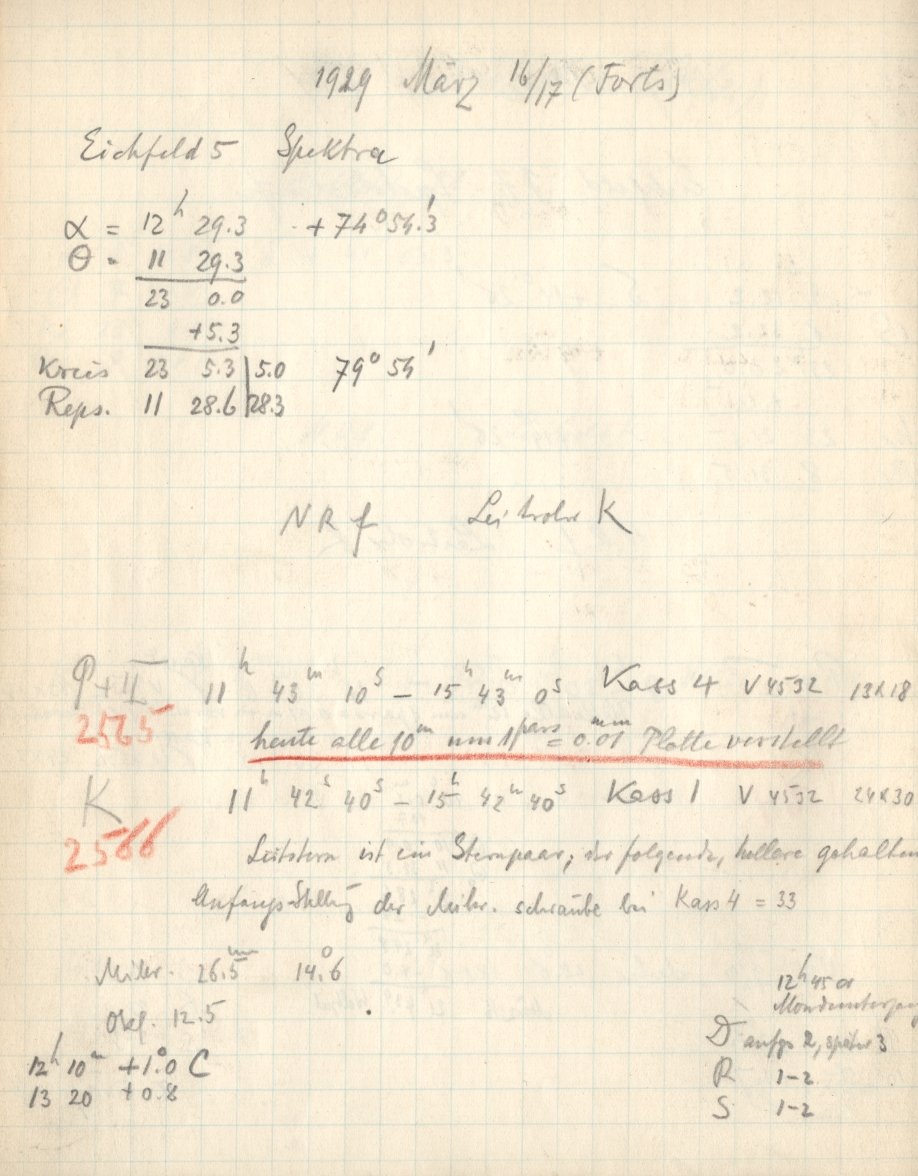 1929 März 16/17 (Forts)
Eichfeld 5 Spektra
α = 12h 29.3 +74° 54.'3
θ = 11 29.3
23 0.0
+5.3
Kreis 23 5.3 | 5.0 79° 54'
Reps. 11 28.6 | 28.3
NR f Leitrohr K
P+II 11h 43m 10s – 15h 43m 0s Kass 4 V 4532 13x18
2565
heute alle 10m um 1 pars = 0.01 mm Platte verstellt
K 11h 42s 40s – 15h 42m 40s Kass 1 V 4532 24x30
2566
Leitstern ist ein Sternpaar, der folgende, hellere gehalten
Anfangs-Stellung der Mikr. schraube bei Kass 4 = 33
Mikr. 26.5mm 14.°6
Okl. 12.5
12h 10m +1.°0 C
13 20 +0.8
12h 45
Monduntergang
D anfgs 2, später 3
R 1–2
S 1–2